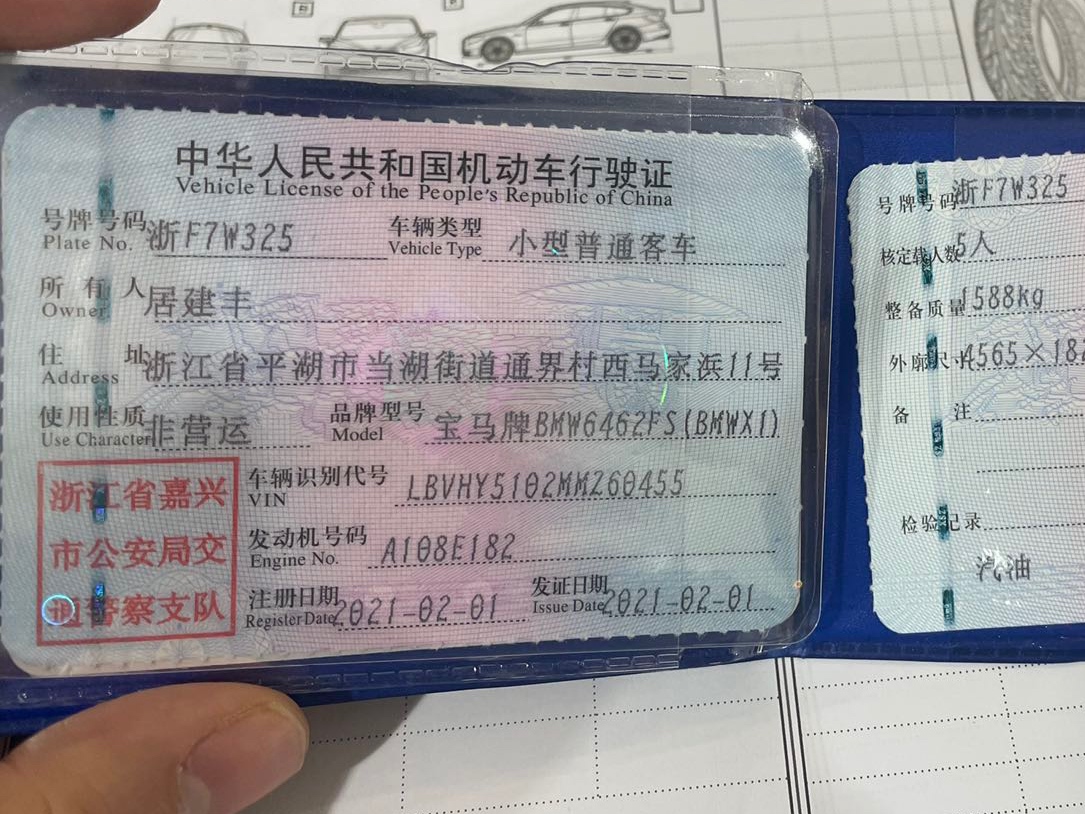 中华人民共和国机动车行驶证
Vehicle License of the People's Republic of China
号牌号码 浙F7W325 车辆类型 小型普通客车
Plate No. Vehicle Type
所有人 居建丰
Owner
住址 浙江省平湖市当湖街道通界村西马家浜11号
Address
使用性质 非营运 品牌型号 宝马牌BMW6462FS(BMWX1)
Use Character Model
浙江省嘉兴
市公安局交
通警察支队
车辆识别代号 LBVHY5102MMZ60455
VIN
发动机号码 A108E182
Engine No.
注册日期 2021-02-01 发证日期 2021-02-01
Register Date Issue Date
号牌号码 浙F7W325
核定载人数 5人
整备质量 1588kg
外廓尺寸 4565×182
备注
检验记录
汽油